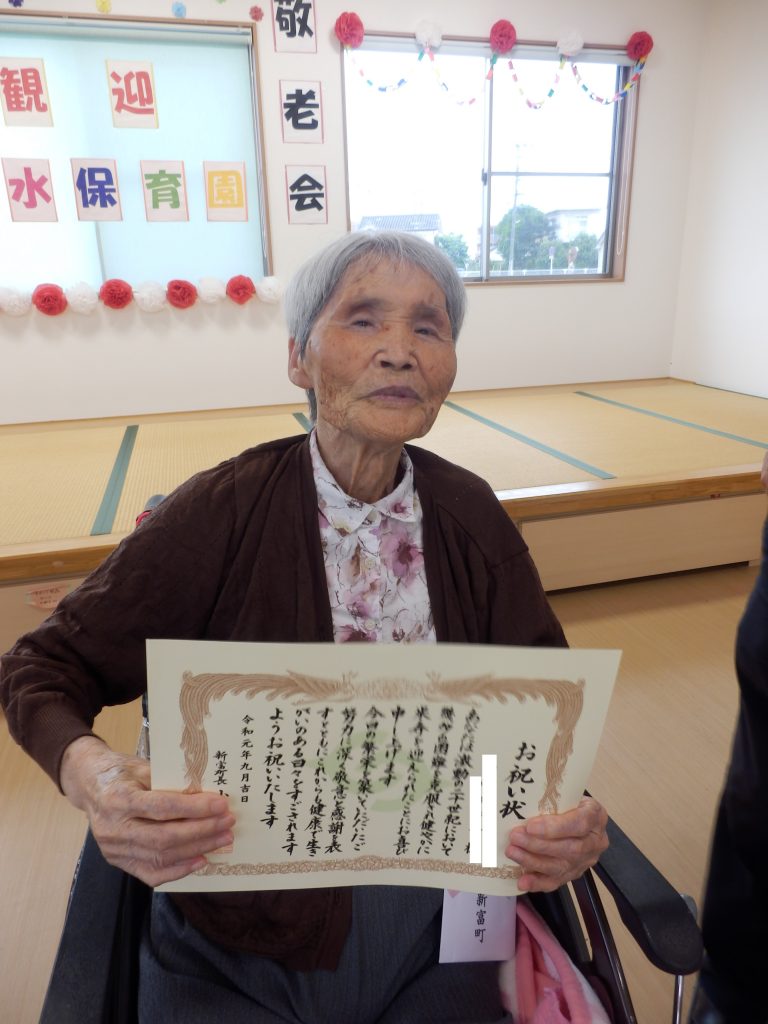 観迎
水保育園
敬老会
お祝い状
様
あなたは激動の二十世紀において
幾多の困難を克服され健やかに
米寿を迎えられたことにお喜び
申し上げます
今回の繁栄を築いていただいたご
努力に深い敬意と感謝を表
すとともにこれからも健康で生き
がいのある日々をすごされます
ようお祝いいたします
令和元年九月吉日
新富町長
新富町